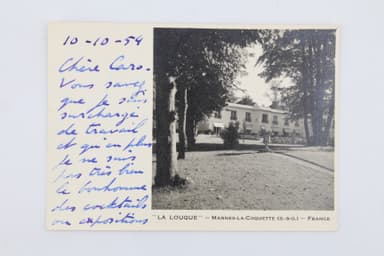 10-10-54
Chère Caro.
Vous savez
que je suis
surchargé
de travail
et qu'en plus
je ne suis
pas très bien
le bonhomme
des cocktails
ou expositions
"LA LOUQUE" – MARNES-LA-COQUETTE (S.-&-O.) – FRANCE